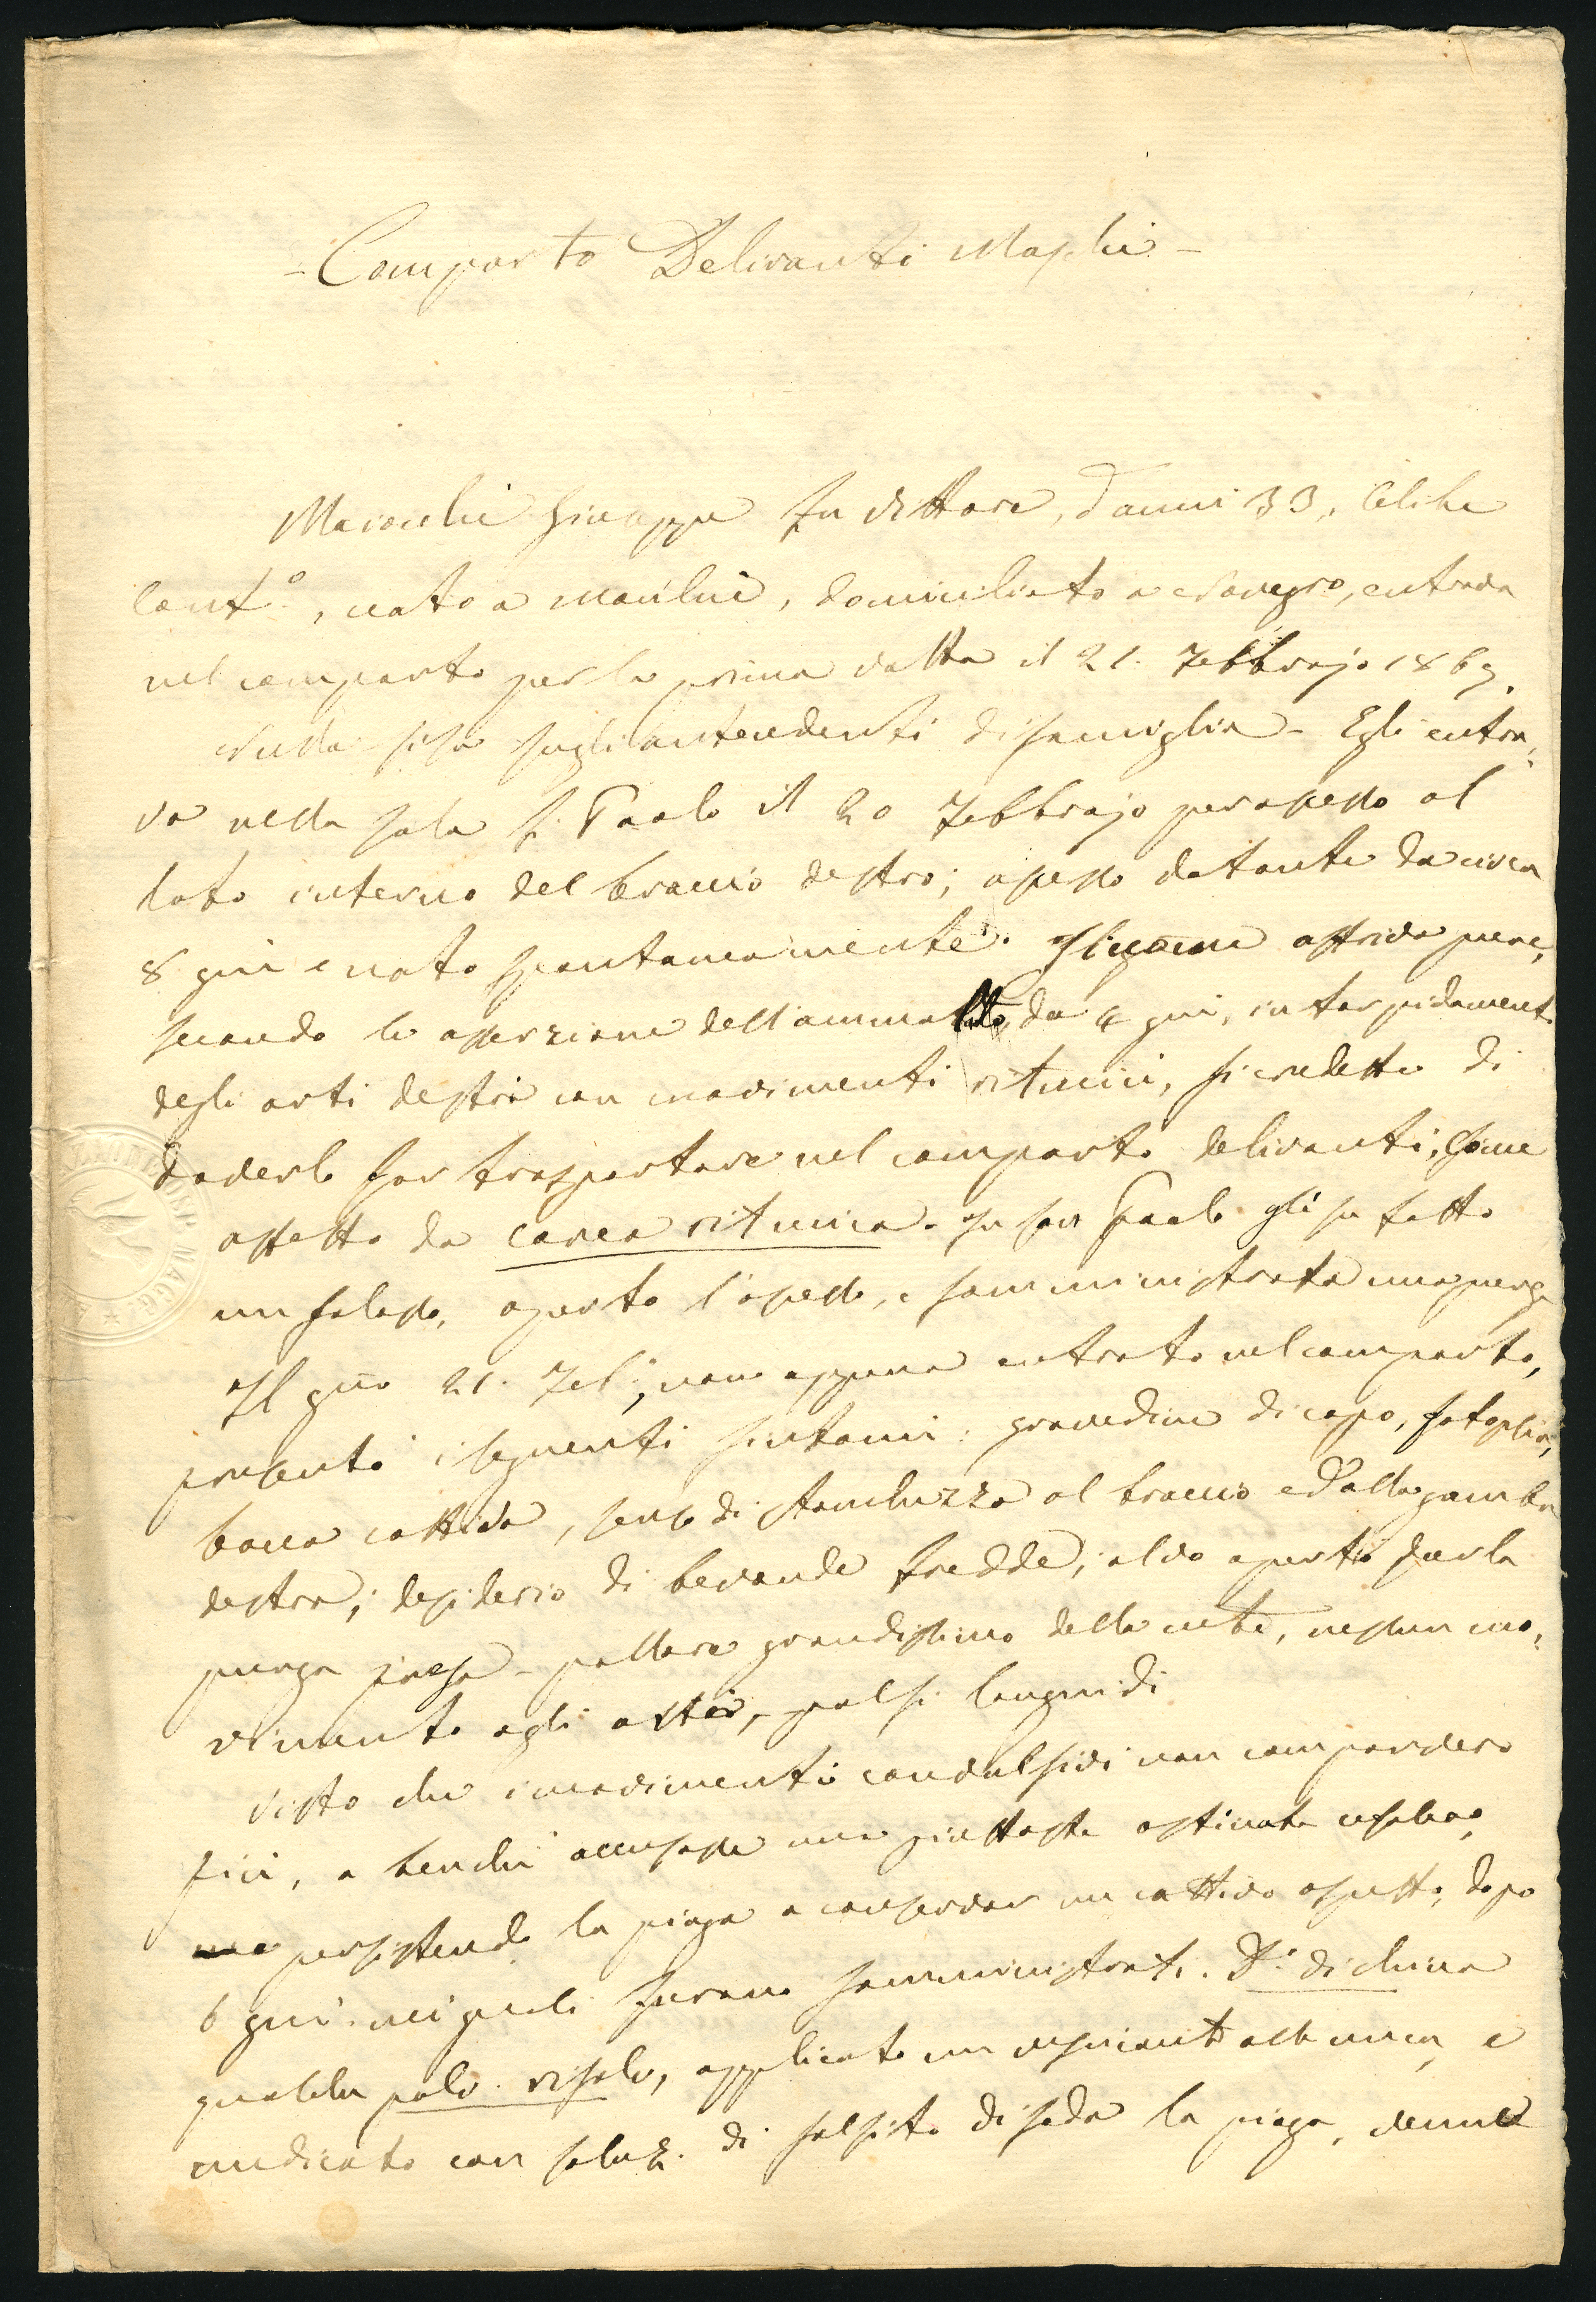 - Comparto Deliranti Maschi -
Maiocchi Giuseppe fu Vittore, d'anni 33, Celibe
Cont.º, nato a, domiciliato a, entrava
nel comparto per la prima volta il 21. Febbrajo 1869.
Nulla si sa sugli antecedenti di famiglia - Egli entra,,
va nella sala S. Paolo il 20 Febbrajo per ascesso al
lato interno del braccio destro; ascesso datante da circa
8 gni e nato spontaneamente. Siccome offriva pure,
secondo le asserzione dell'ammalato, da 4 gni, intorpidament.
degli arti destri con movimenti ritmici, si credette di
doverlo far trasportare nel comparto deliranti, come
affetto da corea ritmica. In San Paolo gli fu fatto
un salasso, aperto l'ascesso, e somministrata una purga
Il gno 21. Feb:, non appena entrato nel comparto,
presentò i seguenti sintomi: gravedine di capo,
bocca cattiva, senso di stanchezza al braccio ed alla gamba
destra; desiderio di bevande fredde; alvo aperto per la
purga presa - pallore grandissimo della cute, nessun mo,,
vimento agli arti, polsi languidi
Visto che i movimenti convulsivi non comparvero
più, e benchè accusasse una piuttosto ostinata cefalea,
persistendo la piaga a conservar un cattivo aspetto, dopo
6 gni. nei quali furono somministrati. D.i di china
qualche polv. risolv, applicato un vescicante alla nuca, e
medicato con soluz. di solfito di soda la piaga, venne